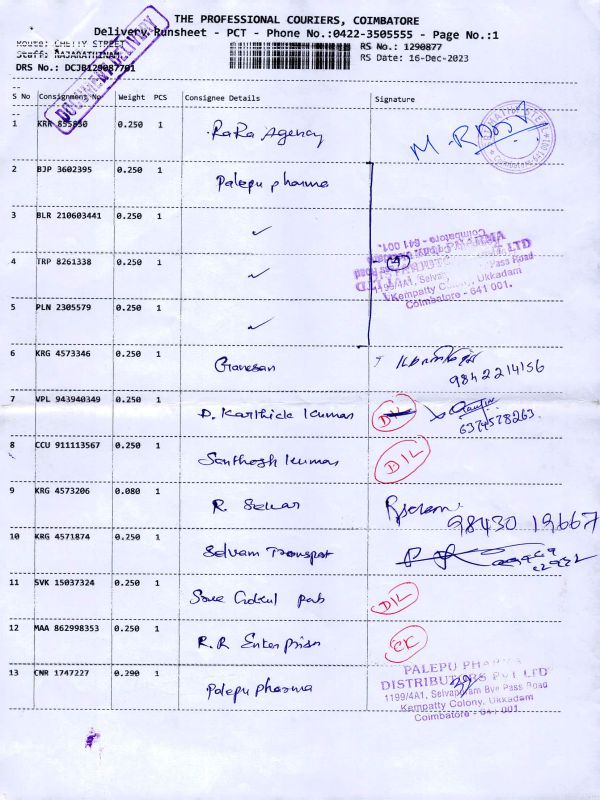 THE PROFESSIONAL COURIERS, COIMBATORE
Delivery Runsheet - PCT - Phone No.:0422-3505555 - Page No.:1
Route: CHETTY STREET
Staff: RAJARATHINAM
DRS No.: DCJB129087701
RS No.: 1290877
RS Date: 16-Dec-2023
S No Consignment No Weight PCS Consignee Details Signature
1 KRR 855850 0.250 1 RaRa Agency M.
2 BJP 3602395 0.250 1 Palepu pharma
3 BLR 210603441 0.250 1 ✓
Coimbatore - 641 001.
4 TRP 8261338 0.250 1 ✓ 4
1199/4A1, Selva Pass Road
Kempatty Colony, Ukkadam
Coimbatore - 641 001.
5 PLN 2305579 0.250 1 ✓
6 KRG 4573346 0.250 1 Ganesan
9842214156
7 VPL 943940349 0.250 1 D. Karthick Kumar
6374578263
8 CCU 911113567 0.250 1 Santhosh Kumar DIL
9 KRG 4573206 0.080 1 R. Selvar
98430 19667
10 KRG 4571874 0.250 1 Selvam Transpot
11 SVK 15037324 0.250 1 DIL
12 MAA 862998353 0.250 1 R.R Enterprises CK
13 CNR 1747227 0.290 1 Palepu pharma
PALEPU PHARMA
DISTRIBUTORS PVT LTD
1199/4A1, Selvapuram Bye Pass Road
Kempatty Colony, Ukkadam
Coimbatore - 641 001